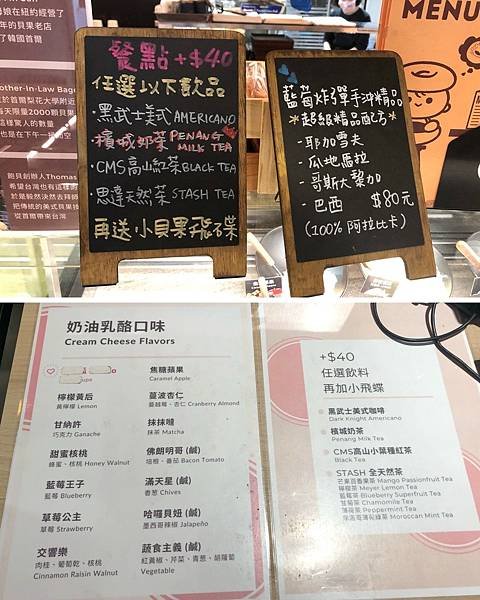 MENU
餐點+$40
任選以下飲品
·黑武士美式AMERICANO
檳城奶茶PENANG MILK TEA
·CMS高山紅茶BLACK TEA
·思達天然茶STASH TEA
再送小貝果飛碟
藍莓炸彈手沖精品
*超級精品配方*
- 耶加雪夫
- 瓜地馬拉
- 哥斯大黎加
- 巴西 $80元
(100% 阿拉比卡)
奶油乳酪口味
Cream Cheese Flavors
焦糖蘋果
Caramel Apple
檸檬黃后
黃檸檬 Lemon
蔓波杏仁
蔓越莓、杏仁 Cranberry Almond
甘納許
巧克力 Ganache
抹抹噠
抹茶 Matcha
甜蜜核桃
蜂蜜、核桃 Honey Walnut
佛朗明哥 (鹹)
培根、番茄 Bacon Tomato
藍莓王子
藍莓 Blueberry
滿天星 (鹹)
香蔥 Chives
草莓公主
草莓 Strawberry
哈囉貝妞 (鹹)
墨西哥辣椒 Jalapeño
交響樂
肉桂、葡萄乾、核桃
Cinnamon Raisin Walnut
蔬食主義 (鹹)
紅黃椒、芹菜、青蔥、胡蘿蔔
Vegetable
+$40
任選飲料
再加小飛蝶
黑武士美式咖啡
Dark Knight Americano
檳城奶茶
Penang Milk Tea
CMS高山小葉種紅茶
Black Tea
STASH 全天然茶
芒果百香果茶 Mango Passionfruit Tea
檸檬茶 Meyer Lemon Tea
藍莓茶 Blueberry Superfruit Tea
甘菊茶 Chamomile Tea
薄荷茶 Peppermint Tea
摩洛哥薄荷綠茶 Moroccan Mint Tea